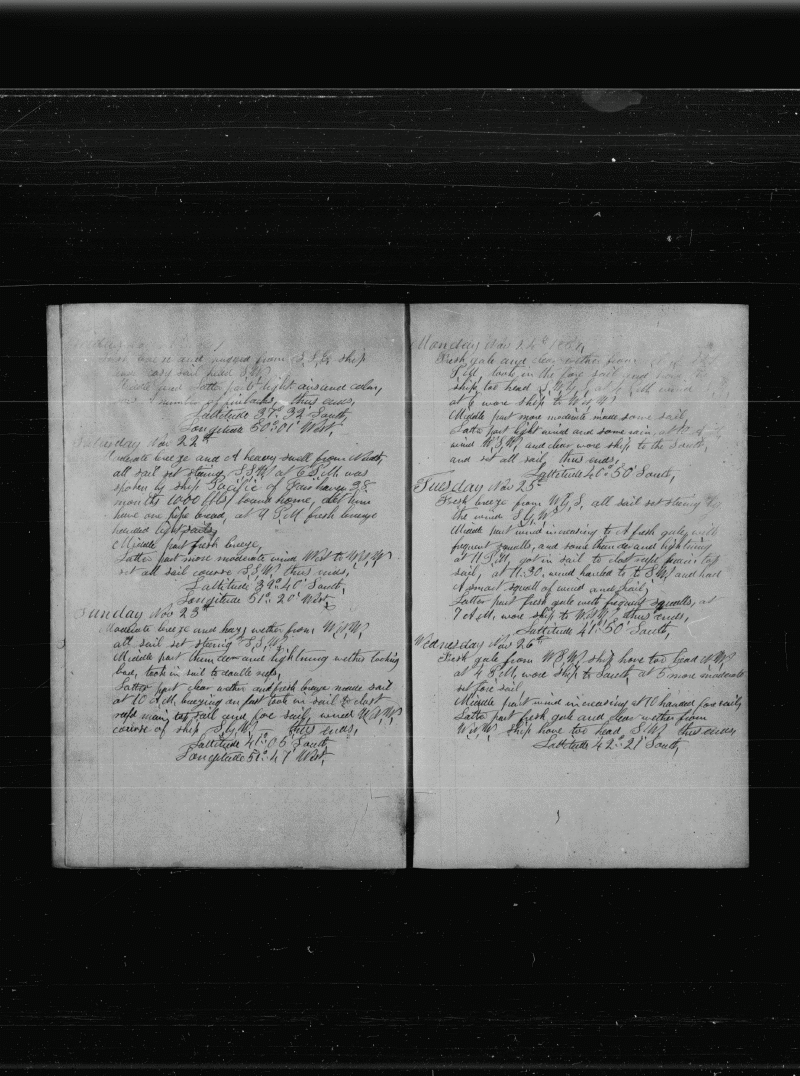 breeze and rugged from S, S, E, ship
head S, W,
Middle and Latter part light airs and calm,
number of finbacks, thus ends,
Lattitude 37° 32 South,
Longitude 50° 01 West,
Saturday Nov 22nd
Moderate breeze and A heavy swell from West,
all sail set stering S S W, at 6 P, M, was
spoken by ship Pacific of Fairhaven 28
months 1000 bbls bound home,
have one pipe bread, at 9 P, M fresh breeze
handed light sails,
Middle part fresh breeze,
Latter part more moderate wind West to W, N, W,
set all sail course S, S, W, thus ends,
Lattitude 39° 40' South,
Longitude 51° 20' West,
Sunday Nov 23rd
Moderate breeze and hazy wether from W, N, W,
all sail set stering S, S, W,
Middle part thunder and lightning wether looking
bad, took in sail to double reefs,
Latter part clear wether and fresh breeze made sail
at 10 A, M, breezing on fast took in sail to close
reefd main top sail and fore sail, wind W, N, W,
course of ship S, by, W, thus ends,
Lattitude 41° 05' South,
Longitude 51° 47' West,
Monday Nov 24th
Fresh gale and clear wether from
took in the fore sail and
ship, too head at 4, P, M wind
at 6 wore ship to W, N, W,
Middle part more moderate made some sail
Latter part light wind and some rain, at
wind W, S, W, and clear wore ship to the South,
and set all sail, thus ends,
Lattitude 40° 50' South,
Tuesday Nov 25th
Fresh breeze from W, by, S, all sail set stering by
the wind S, by, W,
Middle part wind increasing to A fresh gale, with
frequent squalls, and some thunder and lightning
at 11 P, M, got in sail to close reefd main top
sail, at 11.30, wind hauled to S, W, and had
A smart squall of wind and hail,
Latter part fresh gale with frequent squalls, at
7 A, M, wore ship to thus ends,
Lattitude 41° 50' South,
Wednesday Nov 26th
Fresh gale from W, S, W, ship hove too head N, W,
at 4 P, M, wore ship to South, at 5 more moderate
set fore sail
Middle part wind increasing at 10 handed fore sail,
Latter part fresh gale and clear wether from
ship hove too head, S, W, thus ends,
Lattitude 42° 21' South,